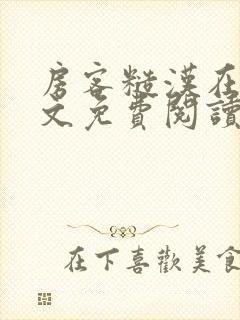 房客糙漢在
文免費閱讀
在下喜歡美食